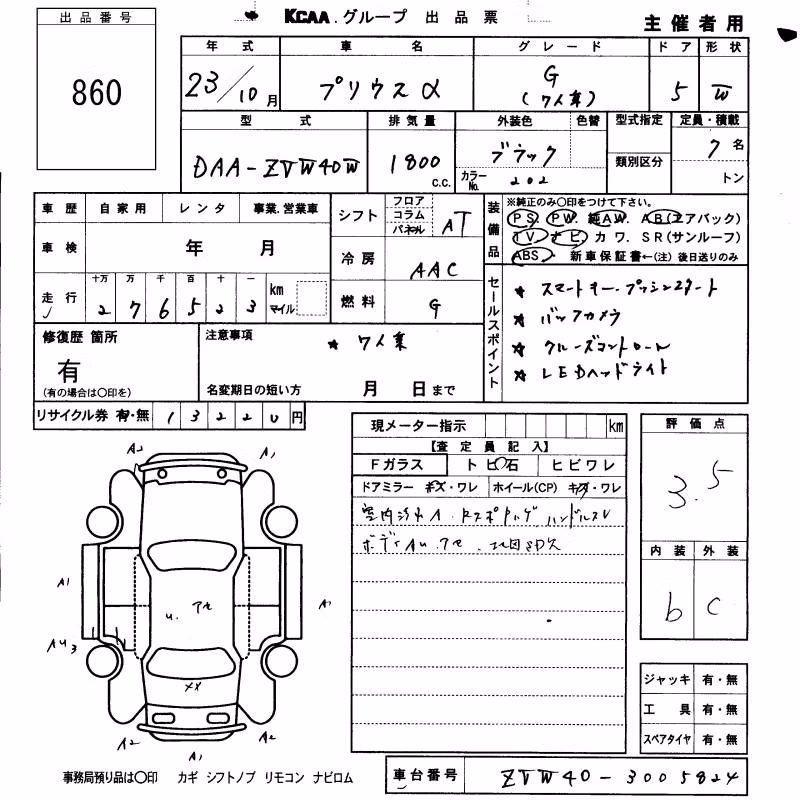 出品番号
860
KCAA.グループ 出品票
主催者用
年式 車名 グレード ドア 形状
23/10月 プリウスα G (7人乗) 5 W
型式 排気量 外装色 色替 型式指定 定員・積載
DAA-ZVW40W 1800 c.c. ブラック 類別区分 7名
カラーNo. 202 トン
車歴 自家用 レンタ 事業.営業車
シフト フロア コラム パネル AT
装備品
※純正のみ○印をつけて下さい。
PS. PW. 純AW. AB(エアバック)
TV. ナビ. カワ. SR(サンルーフ)
ABS. 新車保証書←(注) 後日送りのみ
車検 年 月
冷房 AAC
走行 十万 万 千 百 十 一 km マイル
2 7 6 5 2 3
燃料 G
セールスポイント
★ スマートキー.プッシュスタート
★ バックカメラ
★ クルーズコントロール
★ LEDヘッドライト
修復歴 箇所
有
(有の場合は○印を)
注意事項
★ 7人乗
名変期日の短い方 月 日まで
リサイクル券 有・無 13220円
現メーター指示 km
【査定員記入】
Fガラス トビ石 ヒビワレ
ドアミラー キズ・ワレ ホイール(CP) キズ・ワレ
評価点
3.5
内装 外装
b C
A2 A1
A1 A1
AU3
U. アセ
XX
A2 A1 A2
ジャッキ 有・無
工具 有・無
スペアタイヤ 有・無
事務局預り品は○印 カギ シフトノブ リモコン ナビロム
車台番号 ZVW40-3005824